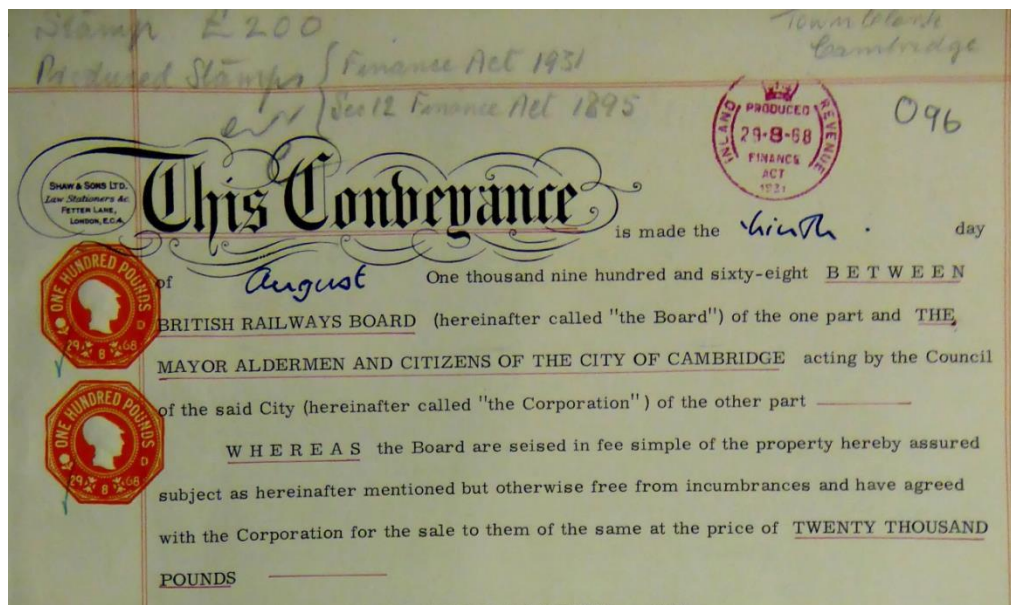 Stamp £200
Town Clerk
Cambridge
Produced Stamps { Finance Act 1931
{ Sec 12 Finance Act 1895
096
INLAND REVENUE
PRODUCED
29-8-68
FINANCE
ACT
1931
SHAW & SONS LTD.
Law Stationers &c.
FETTER LANE,
LONDON, E.C.4.
This Conveyance is made the ninth . day
of August One thousand nine hundred and sixty-eight BETWEEN
BRITISH RAILWAYS BOARD (hereinafter called "the Board") of the one part and THE
MAYOR ALDERMEN AND CITIZENS OF THE CITY OF CAMBRIDGE acting by the Council
of the said City (hereinafter called "the Corporation") of the other part
WHEREAS the Board are seised in fee simple of the property hereby assured
subject as hereinafter mentioned but otherwise free from incumbrances and have agreed
with the Corporation for the sale to them of the same at the price of TWENTY THOUSAND
POUNDS
ONE HUNDRED POUNDS
D
29 8 68
ONE HUNDRED POUNDS
D
29 8 68